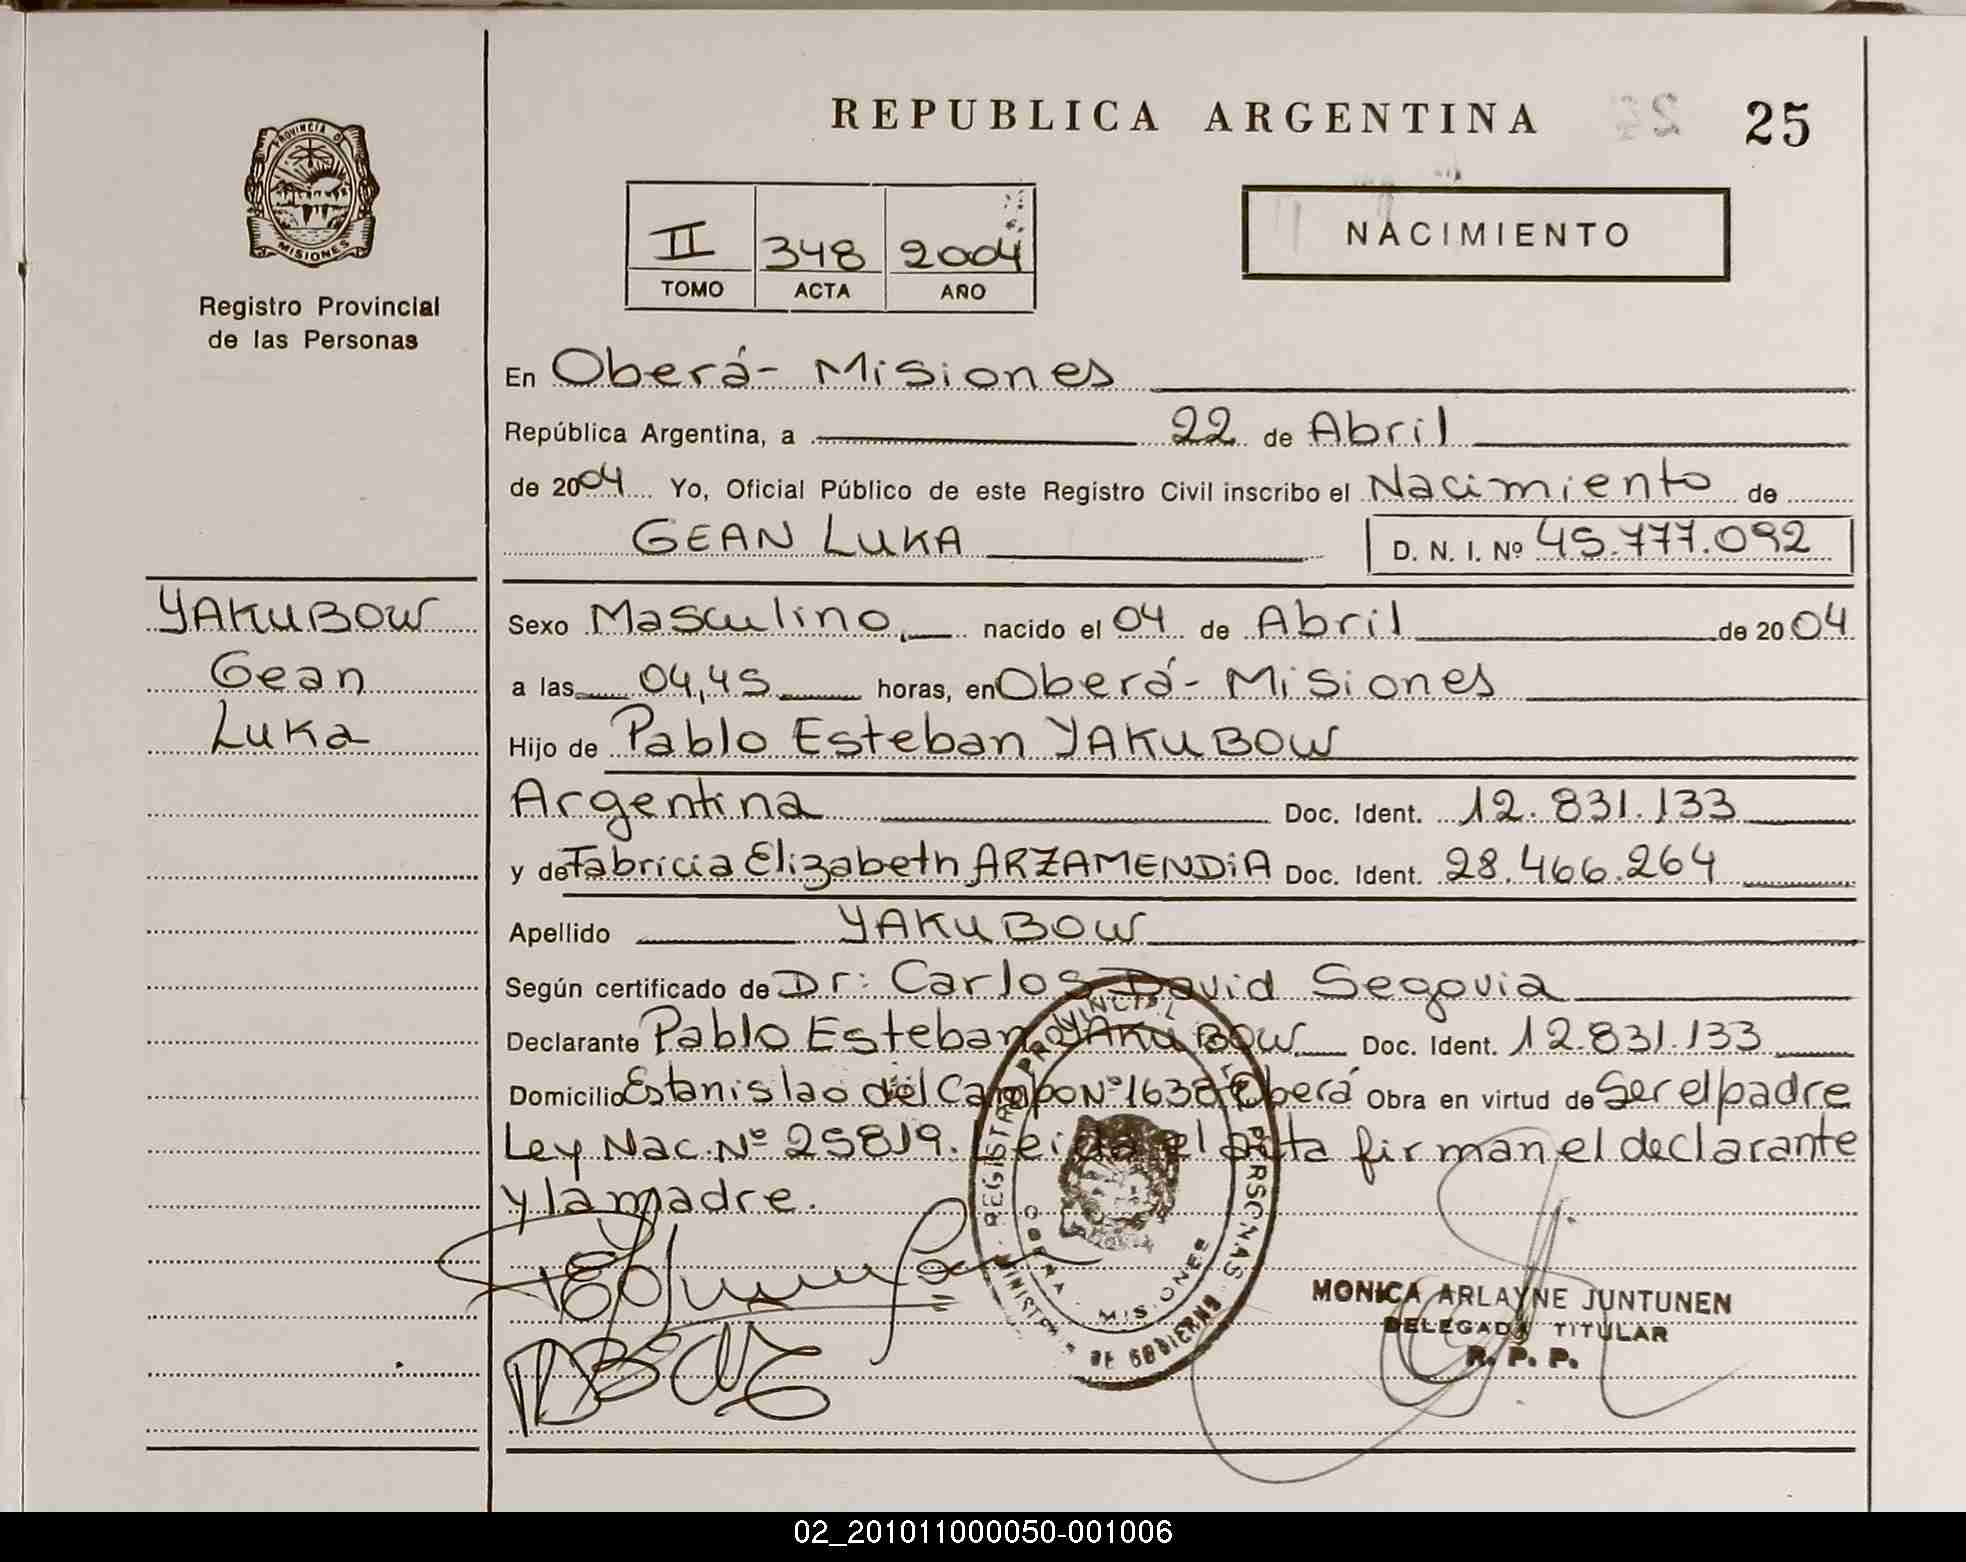 PROVINCIA DE
MISIONES
Registro Provincial
de las Personas
REPUBLICA ARGENTINA
25
II 348 2004
TOMO ACTA AÑO
NACIMIENTO
En Oberá- Misiones
República Argentina, a 22 de Abril
de 2004 Yo, Oficial Público de este Registro Civil inscribo el Nacimiento de
GEAN LUKA D. N. I. Nº 45.777.092
YAKUBOW
Gean
Luka
Sexo Masculino, nacido el 04 de Abril de 2004
a las 04,45 horas, en Oberá- Misiones
Hijo de Pablo Esteban YAKUBOW
Argentina Doc. Ident. 12.831.133
y de Fabricia Elizabeth ARZAMENDiA Doc. Ident. 28.466.264
Apellido YAKUBOW
Según certificado de Dr: Carlos David Segovia
Declarante Pablo Esteban YAKUBOW Doc. Ident. 12.831.133
Domicilio Estanislao del Campo Nº 1638 Oberá Obra en virtud de Ser el padre
Ley Nac. Nº 25819. Leida el acta firman el declarante
y la madre.
REGISTRO PROVINCIAL DE LAS PERSONAS
MINISTERIO DE GOBIERNO
OBERA - MISIONES
MONICA ARLAYNE JUNTUNEN
DELEGADA TITULAR
R. P. P.
02_201011000050-001006